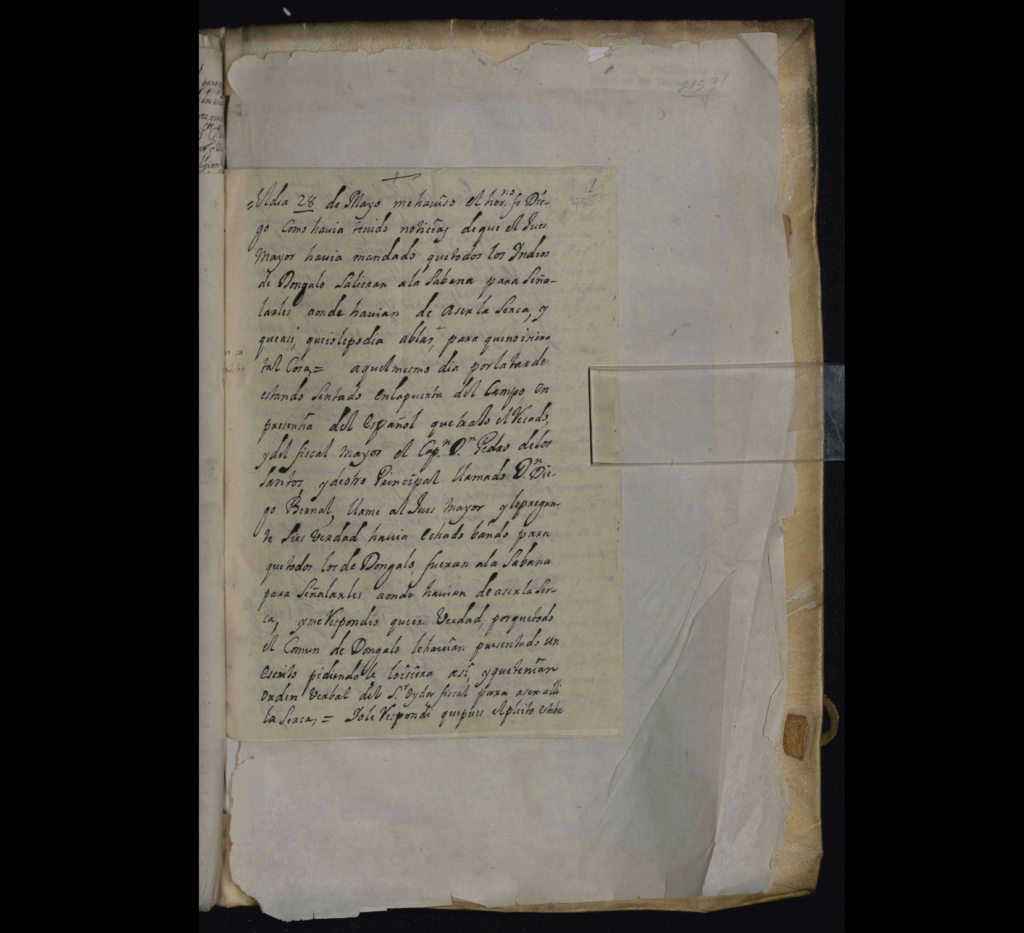 2193
1
=El dia 28 de Mayo me haviso el her.no fr Die-
go como havia tenido noticias de que el Jues
Mayor havia mandado que todos los Indios
de Dongalo Salieran ala Sabana para Seña-
larles aonde havian de aser la Serca, y
que asi, que io le podia ablar, para que no isiera
tal Cosa,= aquel mesmo dia por la tarde
estando Sentado en la puerta del Campo, en
presensia del español que trato el Vecado,
y del fiscal mayor el Cap.n D.n Pedro delos
Santos, y de otro Principal llamado D.n Die-
go Bernal, llame al Jues Mayor y le pregun-
te Si es Verdad havia echado bando para
que todos los de Dongalo, fueran ala Sabana
para Señalarles aonde havian de aser la Ser-
ca, y me Respondio que era Verdad, porque todo
el Comun de Dongalo le havian presentado un
escrito pidiendole lo isiera asi, y que tenian
orden Verbal del S.r oydor fiscal para aser alli
la Serca,= Io le Respondi que pues el pleito estaba